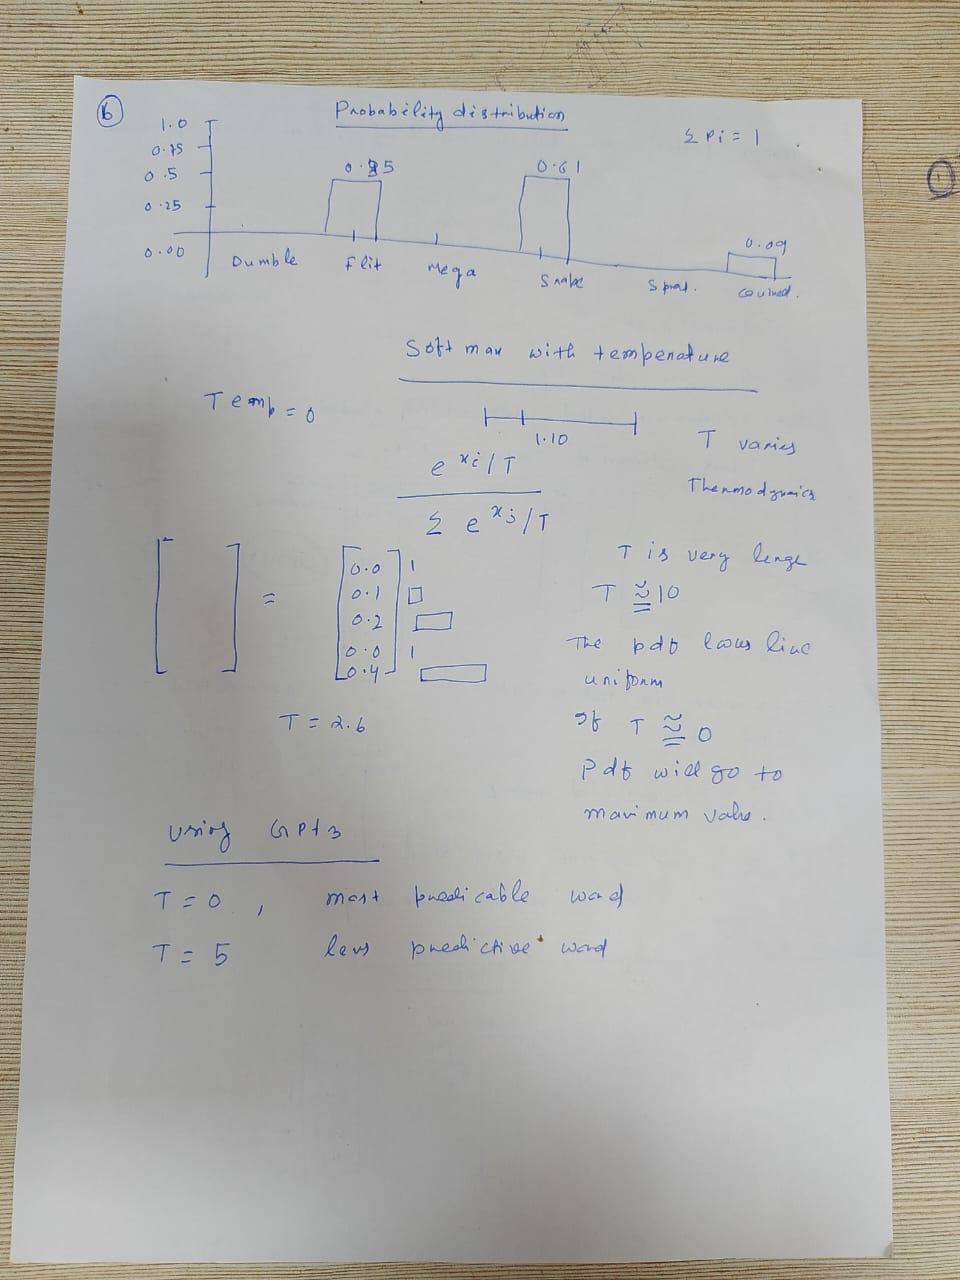 6
Probability distribution
Σ Pi = 1
1.0
0.75
0.5
0.25
0.00
0.61
0.09
Dumble
Flit
Mega
Snake
Sprat.
Soft max with temperature
Temp = 0
1.10
T varies
Thermodynaics
e^xi/T
Σ e^xj/T
T is very large
T ≅ 10
The pdf looks like
uniform
If T ≅ 0
Pdf will go to
maximum value.
=
0.0
0.1
0.2
0.0
0.4
T = 2.6
Using GPt3
T = 0 , most predicable word
T = 5 less predictive word